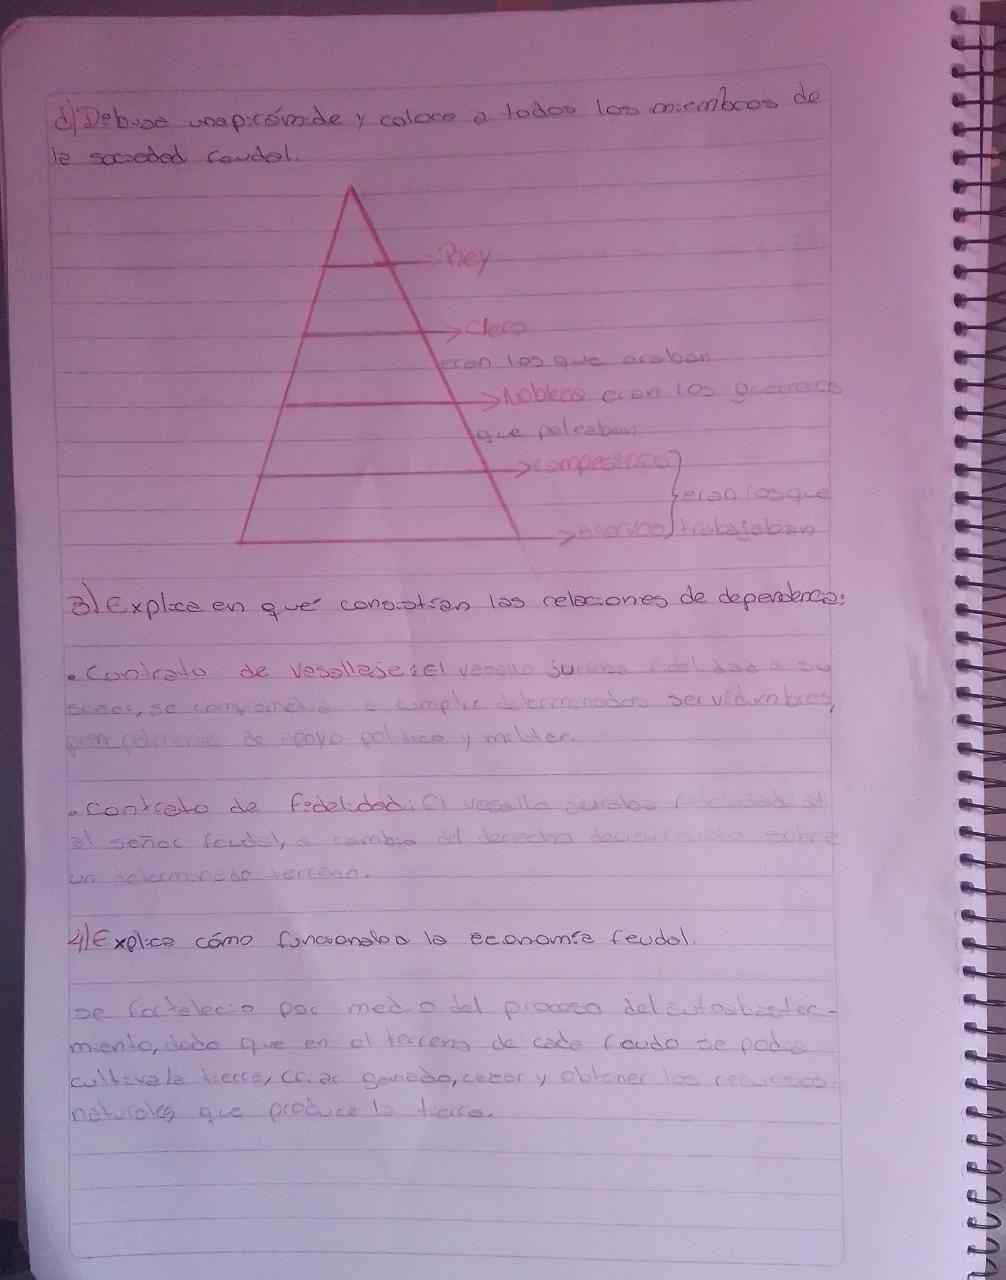 d) Dibuja una pirámide y coloca a todos los miembros de
la sociedad feudal.
Rey
Clero
eran los que oraban
Nobles eran los guerreros
que peleaban
campesinos
eran los que
siervos trabajaban
3) Explica en qué consistían las relaciones de dependencia:
• Contrato de vasallaje: El vasallo juraba fidelidad a su
señor, se comprometía a cumplir determinadas servidumbres,
de apoyo político y militar.
• Contrato de fidelidad: El vasallo juraba fidelidad al
al señor feudal, a cambio del derecho sobre
un determinado terreno.
4) Explica cómo funcionaba la economía feudal.
Se fortaleció por medio del proceso del autoabastec-
miento, dado que en el terreno de cada feudo se podía
cultiva la tierra, criar ganado, cazar y obtener los recursos
naturales que produce la tierra.